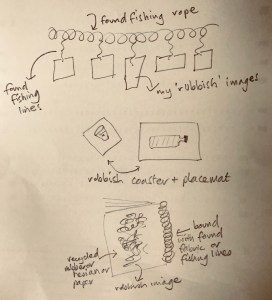 found fishing rope
found
fishing
lines
my 'rubbish' images
rubbish coaster + placemat
recycled
rubber or
hessian or
paper
rubbish image
bound
with found
fabric or
fishing lines